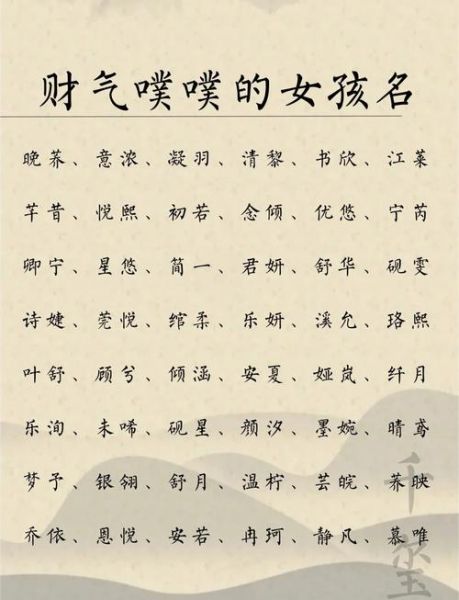 财气噗噗的女孩名
晚荞、意浓、凝羽、清黎、书欣、江菓
芊昔、悦熙、初若、念倾、优悠、宁芮
卿宁、星悠、简一、君妍、舒华、砚雯
诗婕、莞悦、绾柔、乐妍、溪允、珞熙
叶舒、顾兮、倾涵、安夏、娅岚、纤月
乐洵、未唏、砚星、颜汐、墨婉、晴鸢
梦予、银翎、舒月、温柠、芸皖、荞映
乔依、恩悦、安若、冉珂、静凡、慕唯
千玺